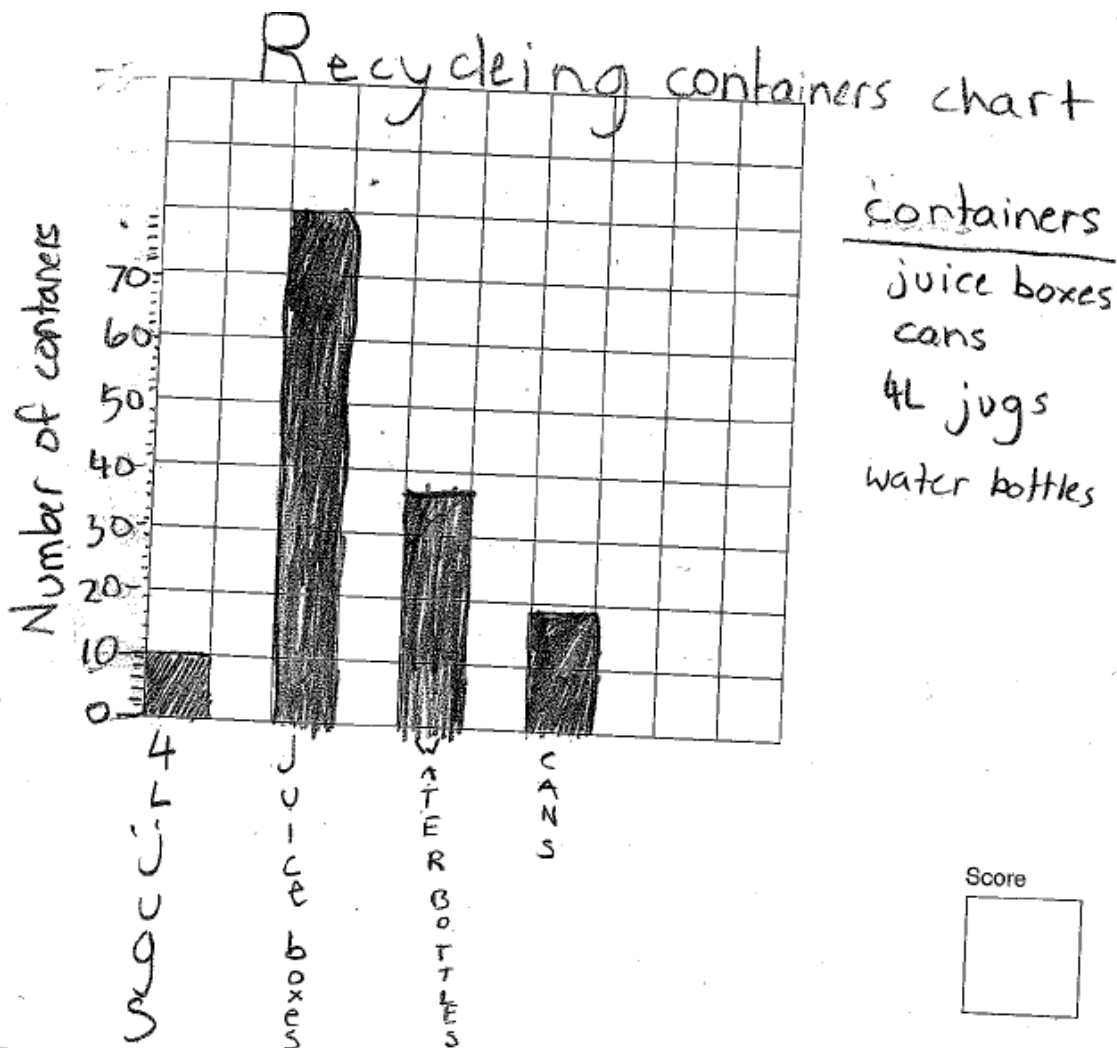 Recycleing containers chart
containers
juice boxes
cans
4L jugs
water bottles
Number of contaners
70
60
50
40
30
20
10
0
4L jugs
juice boxes
WATER BOTTLES
CANS
Score